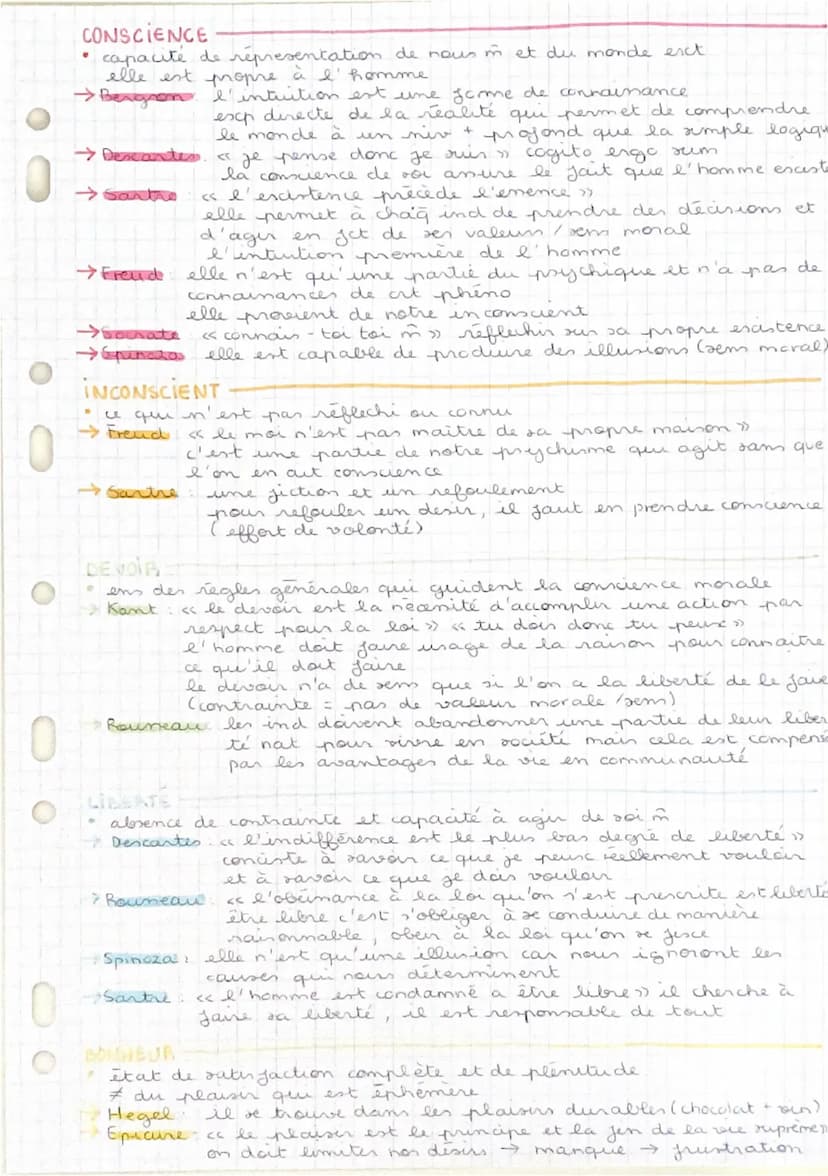 CONSCIENCE
• capacité de réprésentation de nous m̄ et du monde ext
elle est propre à l'homme
→ Bergson : l'intuition est une forme de connaissance
exp directe de la réalité qui permet de comprendre
le monde à un niv + profond que la simple logiqu
→ Descartes : « je pense donc je suis » cogito ergo sum
la conscience de soi assure le fait que l'homme existe
→ Sartre : « l'existence précède l'essence »
elle permet à chaq̄ ind de prendre des décisions et
d'agir en fct de ses valeurs / sens moral
l'intuition première de l'homme
→ Freud : elle n'est qu'une partie du psychique et n'a pas de
connaissances de crt phéno
elle provient de notre inconscient
→ Socrate « connais-toi toi m̄ » réflechir sur sa propre existence
→ Spinoza elle est capable de produire des illusions (sens moral)
INCONSCIENT
• ce qui n'est pas réflechi ou connu
→ Freud « le moi n'est pas maître de sa propre maison »
c'est une partie de notre psychisme qui agit sans que
l'on en ait conscience
→ Sartre : une fiction et un refoulement
pour refouler un desir, il faut en prendre conscience
(effort de volonté)
DEVOIR
• ens des règles générales qui guident la conscience morale
→ Kant : « le devoir est la nécessité d'accomplir une action par
respect pour la loi » « tu dois donc tu peux »
l'homme doit faire usage de la raison pour connaître
ce qu'il doit faire
le devoir n'a de sens que si l'on a la liberté de le faire
(contrainte = pas de valeur morale / sens)
→ Rousseau les ind doivent abandonner une partie de leur liber
té nat pour vivre en société mais cela est compensé
par les avantages de la vie en communauté
LIBERTÉ
• absence de contrainte et capacité à agir de soi m̄
→ Descartes : « l'indifférence est le plus bas degré de liberté »
consiste à savoir ce que je peux réellement vouloir
et à savoir ce que je dois vouloir
→ Rousseau : « l'obéissance à la loi qu'on s'est prescrite est liberté
être libre c'est s'obliger à se conduire de manière
raisonnable, obéir à la loi qu'on se fixe
→ Spinoza : elle n'est qu'une illusion car nous ignorons les
causes qui nous déterminent
→ Sartre : « l'homme est condamné a être libre » il cherche à
faire sa liberté, il est responsable de tout
BONHEUR
• état de satisfaction complète et de plénitude
≠ du plaisir qui est éphémère
→ Hegel : il se trouve dans les plaisirs durables (chocolat +
→ Epicure : « le plaisir est le principe et la fin de la vie suprême »
on doit limiter nos désirs → manque → frustration